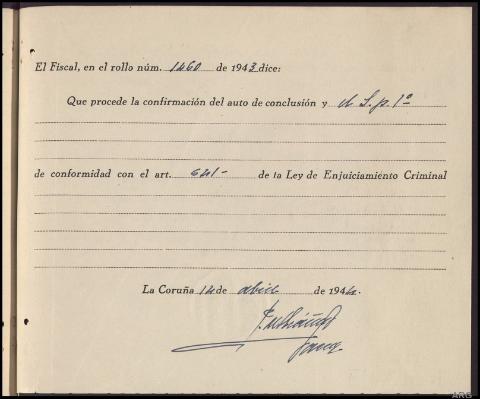 El Fiscal, en el rollo núm. 1460 de 1943 dice:
Que procede la confirmación del auto de conclusión y el S. p. 1º
de conformidad con el art. 641- de la Ley de Enjuiciamiento Criminal
La Coruña 14 de abril de 1944.
ARG